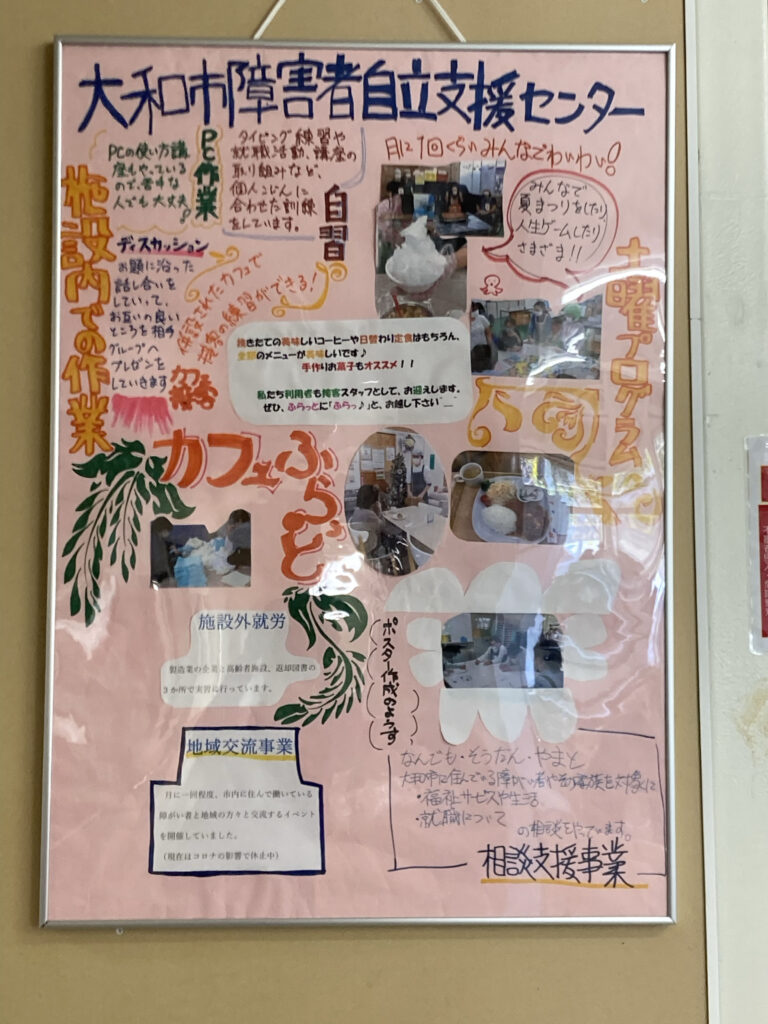 大和市障害者自立支援センター
施設内での作業
PC作業
PCの使い方講
座もやっている
ので、苦手な
人でも大丈夫!
自習
タイピング練習や
就職活動、講座の
取り組みなど、
個人こじんに
合わせた訓練
をしています。
ディスカッション
お題に沿った
話し合いを
していって、
お互いの良い
ところを相手
グループへ
プレゼンを
していきます
月に1回くらいみんなでわいわい!
みんなで
夏まつりをしたり、
人生ゲームしたり
さまざま!!
土曜プログラム
併設されたカフェで
接客の練習ができる!
焼きたての美味しいコーヒーや日替わり定食はもちろん、
全部のメニューが美味しいです♪
手作りお菓子もオススメ!!
私たち利用者も接客スタッフとして、お迎えします。
ぜひ、ふらっとに「ふらっ♪」と、お越し下さい
カフェふらっと
施設外就労
製造業の企業と高齢者施設、返却図書の
3か所で実習に行っています。
ポスター作成のようす
地域交流事業
月に一回程度、市内に住んで働いている
障がい者と地域の方々と交流するイベント
を開催していました。
(現在はコロナの影響で休止中)
なんでも・そうだん・やまと
大和市に住んでいる障がい者やその家族を対象に
・福祉サービスや生活
・就職について
の相談をやっています。
相談支援事業